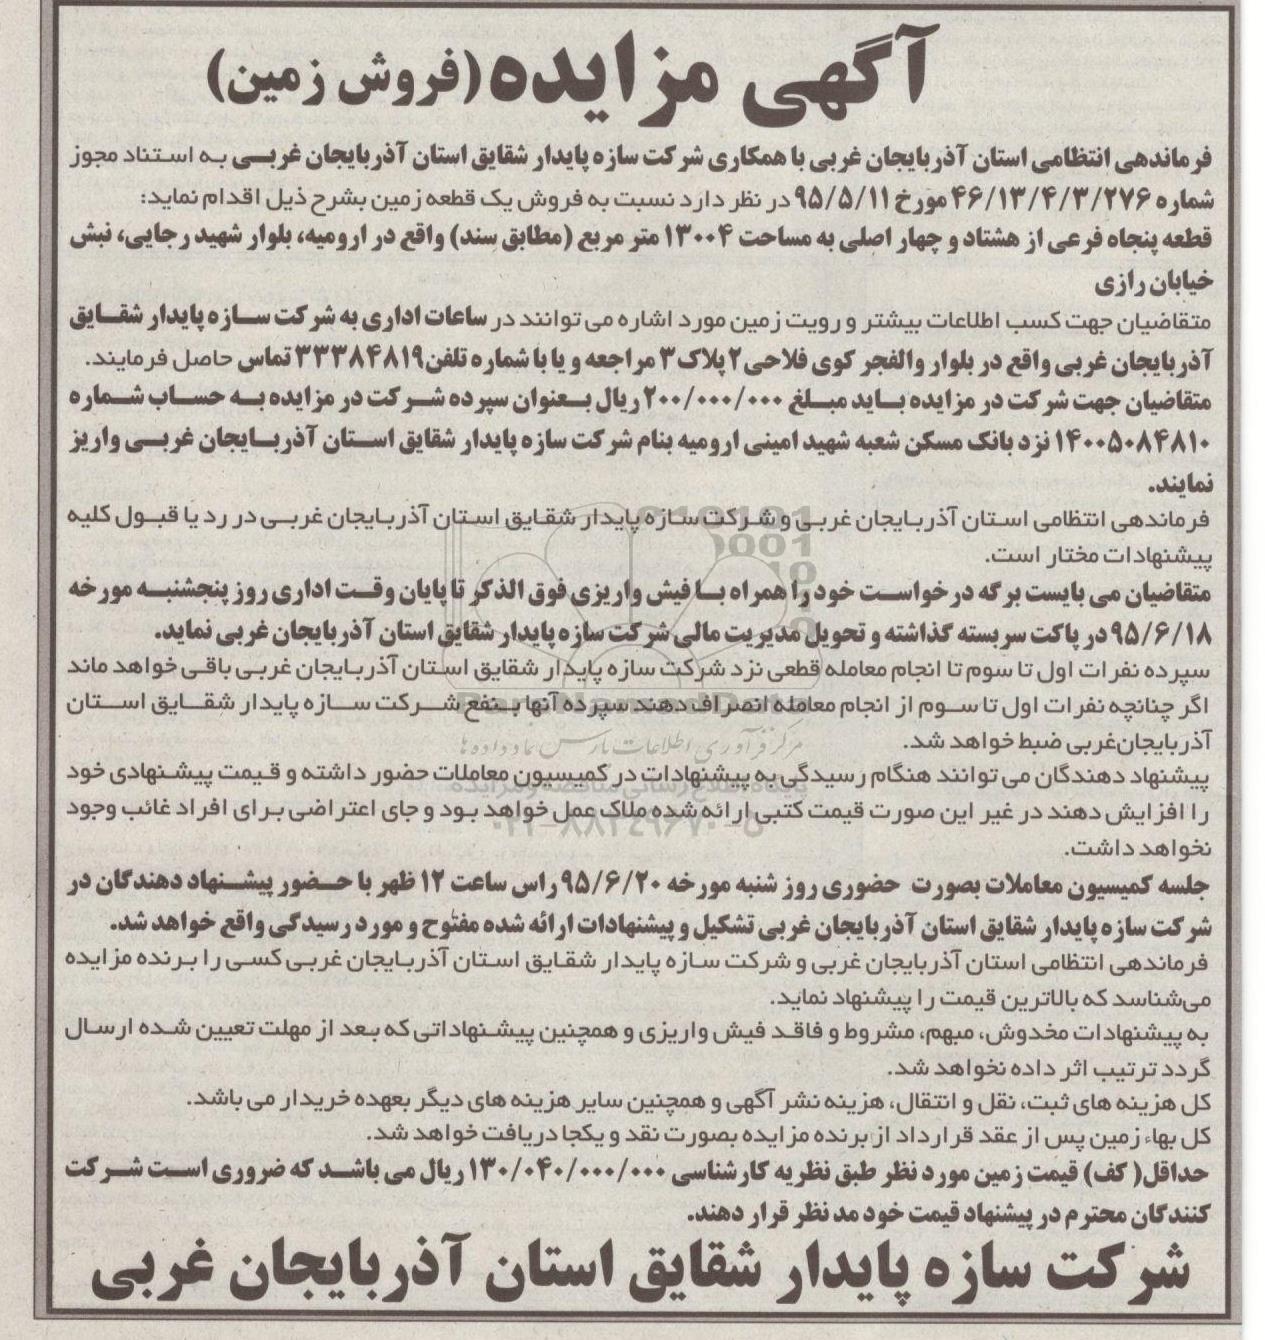 آگهی مزایده (فروش زمین)
فرماندهی انتظامی استان آذربایجان غربی با همکاری شرکت سازه پایدار شقایق استان آذربایجان غربی به استناد مجوز
شماره ۴۶/۱۳/۴/۳/۲۷۶ مورخ ۹۵/۵/۱۱ در نظر دارد نسبت به فروش یک قطعه زمین بشرح ذیل اقدام نماید:
قطعه پنجاه فرعی از هشتاد و چهار اصلی به مساحت ۱۳۰۰۴ متر مربع (مطابق سند) واقع در ارومیه، بلوار شهید رجایی، نبش
خیابان رازی
متقاضیان جهت کسب اطلاعات بیشتر و رویت زمین مورد اشاره می توانند در ساعات اداری به شرکت سازه پایدار شقایق
آذربایجان غربی واقع در بلوار والفجر کوی فلاحی ۲ پلاک ۳ مراجعه و یا با شماره تلفن ۳۳۳۸۴۸۱۹ تماس حاصل فرمایند.
متقاضیان جهت شرکت در مزایده باید مبلغ ۲۰۰/۰۰۰/۰۰۰ ریال بعنوان سپرده شرکت در مزایده به حساب شماره
۱۴۰۰۵۰۸۴۸۱۰ نزد بانک مسکن شعبه شهید امینی ارومیه بنام شرکت سازه پایدار شقایق استان آذربایجان غربی واریز
نمایند.
فرماندهی انتظامی استان آذربایجان غربی و شرکت سازه پایدار شقایق استان آذربایجان غربی در رد یا قبول کلیه
پیشنهادات مختار است.
متقاضیان می بایست برگه درخواست خود را همراه با فیش واریزی فوق الذکر تا پایان وقت اداری روز پنجشنبه مورخه
۹۵/۶/۱۸ در پاکت سربسته گذاشته و تحویل مدیریت مالی شرکت سازه پایدار شقایق استان آذربایجان غربی نماید.
سپرده نفرات اول تا سوم تا انجام معامله قطعی نزد شرکت سازه پایدار شقایق استان آذربایجان غربی باقی خواهد ماند
اگر چنانچه نفرات اول تا سوم از انجام معامله انصراف دهند سپرده آنها بنفع شرکت سازه پایدار شقایق استان
آذربایجان‌غربی ضبط خواهد شد.
پیشنهاد دهندگان می توانند هنگام رسیدگی به پیشنهادات در کمیسیون معاملات حضور داشته و قیمت پیشنهادی خود
را افزایش دهند در غیر این صورت قیمت کتبی ارائه شده ملاک عمل خواهد بود و جای اعتراضی برای افراد غائب وجود
نخواهد داشت.
جلسه کمیسیون معاملات بصورت حضوری روز شنبه مورخه ۹۵/۶/۲۰ راس ساعت ۱۲ ظهر با حضور پیشنهاد دهندگان در
شرکت سازه پایدار شقایق استان آذربایجان غربی تشکیل و پیشنهادات ارائه شده مفتوح و مورد رسیدگی واقع خواهد شد.
فرماندهی انتظامی استان آذربایجان غربی و شرکت سازه پایدار شقایق استان آذربایجان غربی کسی را برنده مزایده
می‌شناسد که بالاترین قیمت را پیشنهاد نماید.
به پیشنهادات مخدوش، مبهم، مشروط و فاقد فیش واریزی و همچنین پیشنهاداتی که بعد از مهلت تعیین شده ارسال
گردد ترتیب اثر داده نخواهد شد.
کل هزینه های ثبت، نقل و انتقال، هزینه نشر آگهی و همچنین سایر هزینه های دیگر بعهده خریدار می باشد.
کل بهاء زمین پس از عقد قرارداد از برنده مزایده بصورت نقد و یکجا دریافت خواهد شد.
حداقل( کف) قیمت زمین مورد نظر طبق نظریه کارشناسی ۱۳۰/۰۴۰/۰۰۰/۰۰۰ ریال می باشد که ضروری است شرکت
کنندگان محترم در پیشنهاد قیمت خود مد نظر قرار دهند.
شرکت سازه پایدار شقایق استان آذربایجان غربی